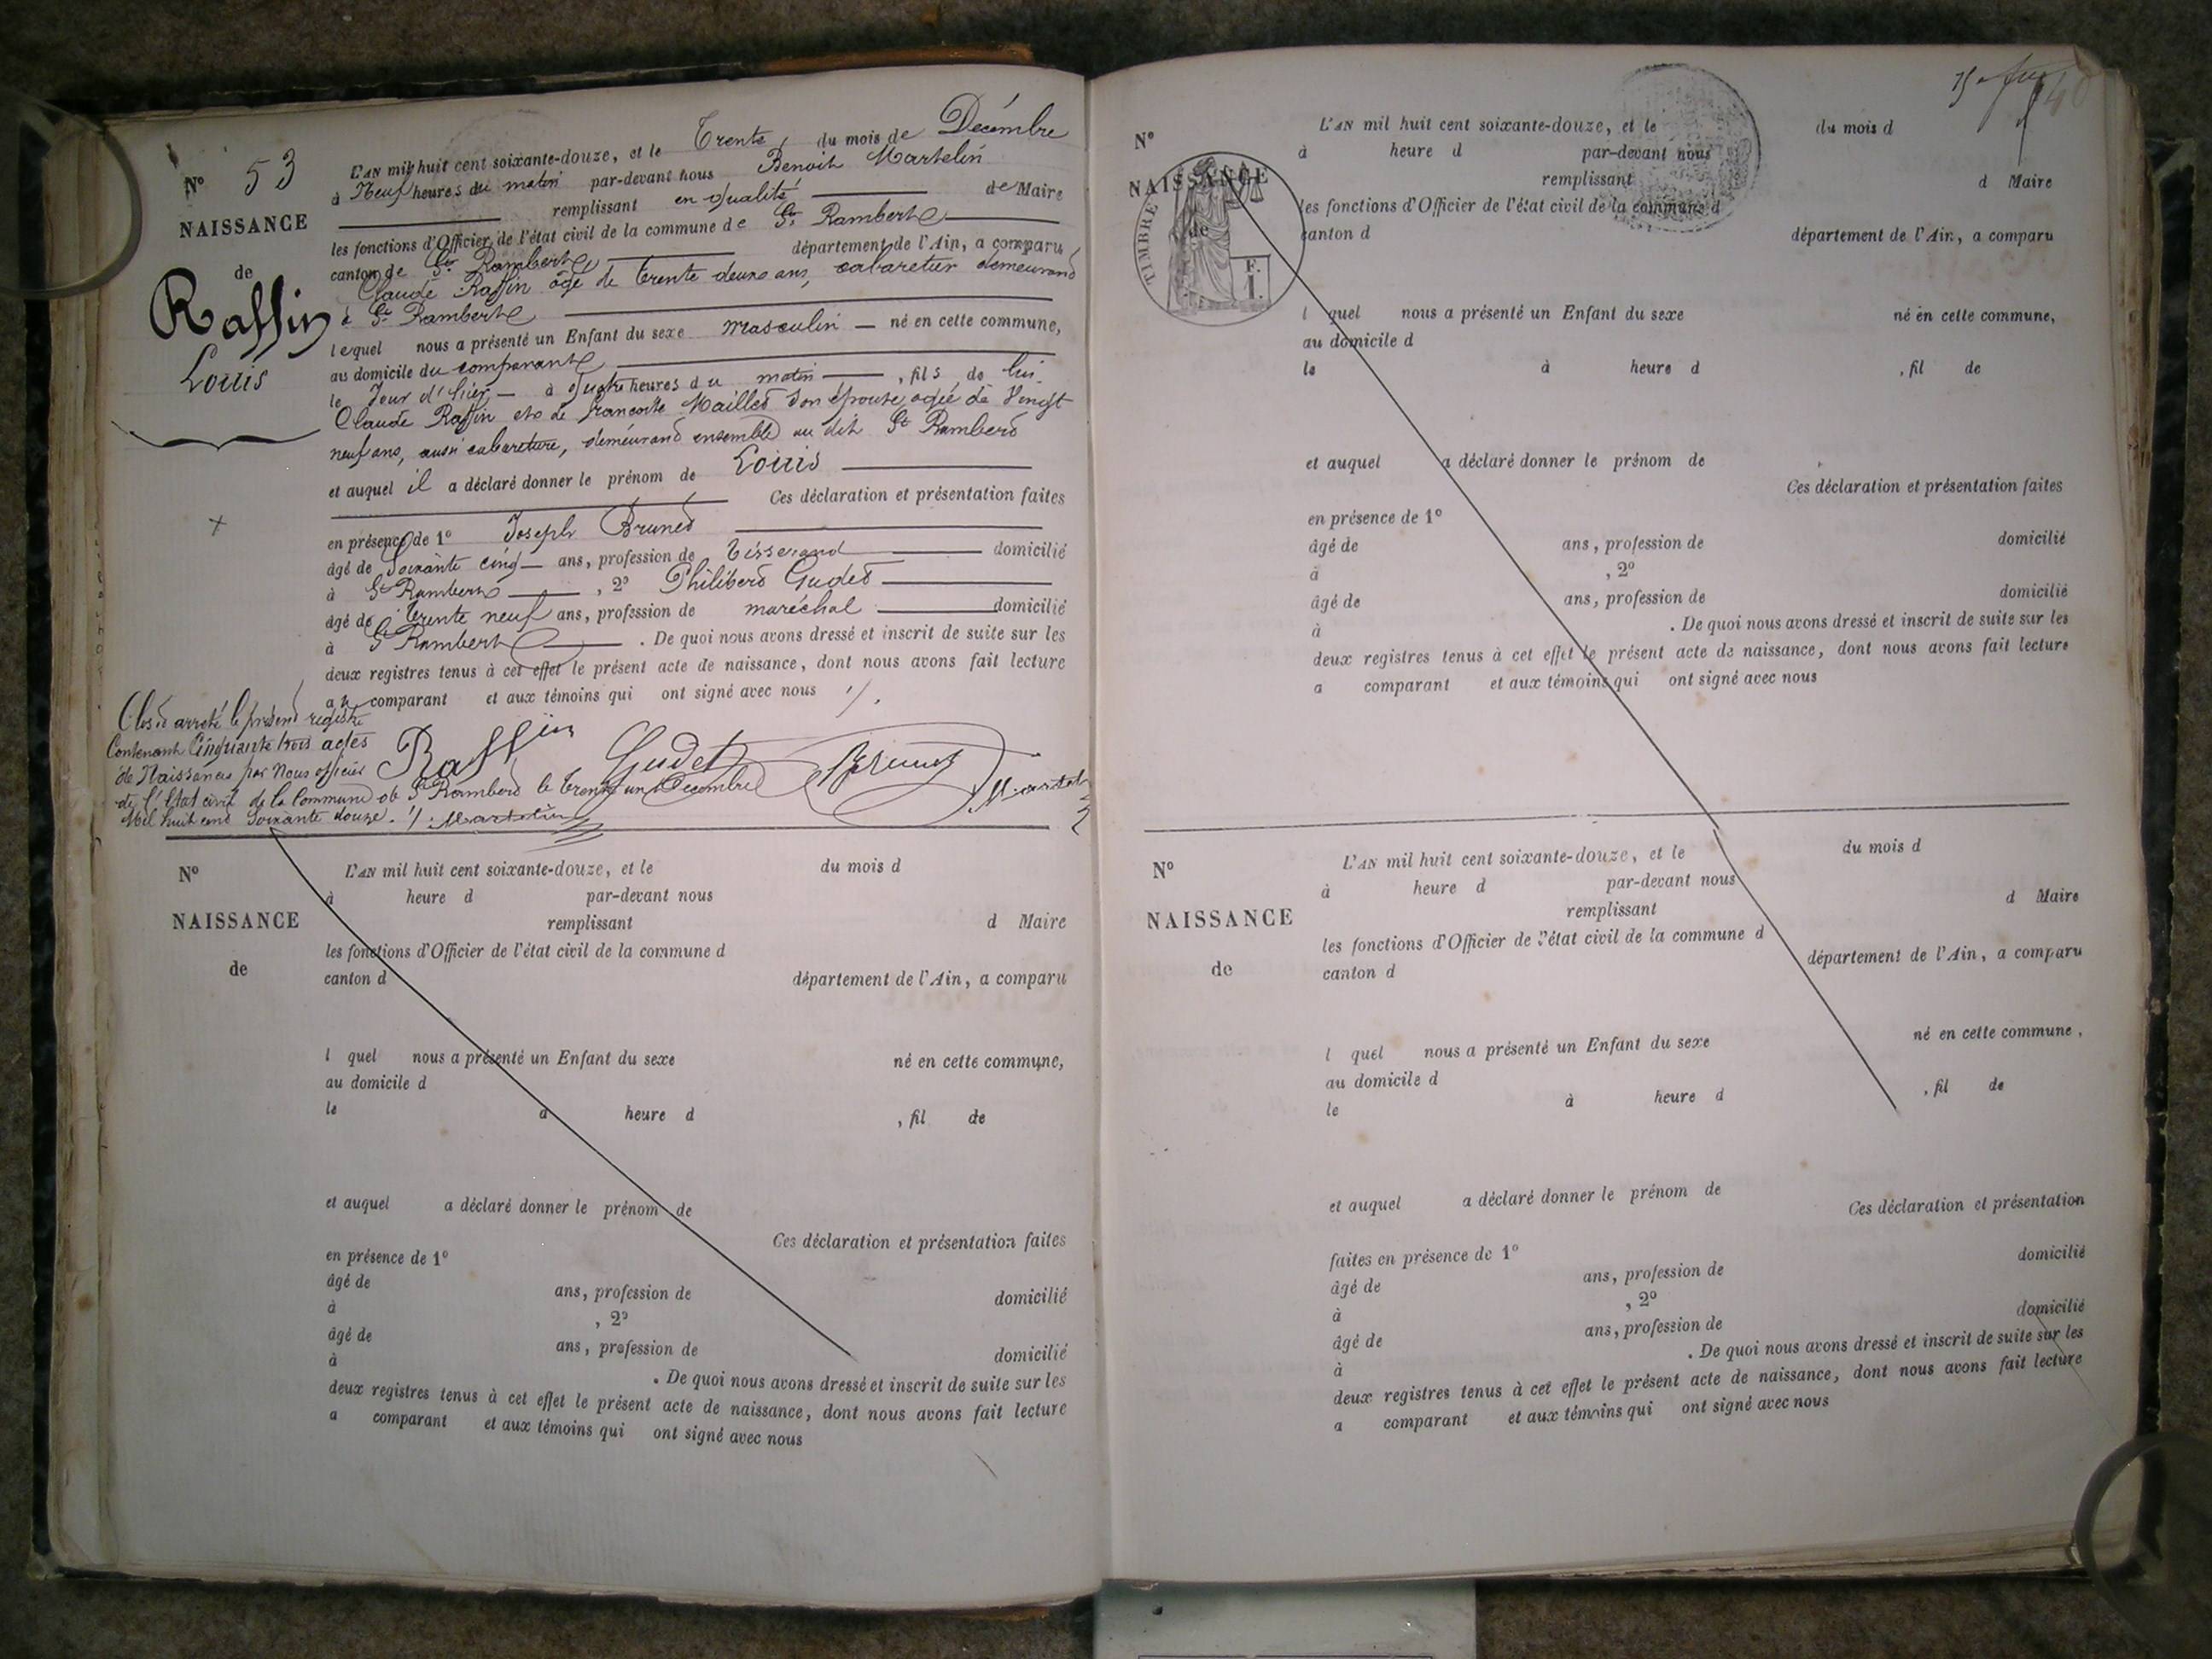 N° 53
NAISSANCE
de
Raffin
Louis
L'AN mil huit cent soixante-douze, et le Trente, du mois de Décembre
à Neuf heures du matin par-devant nous Benoit Martelin
remplissant en qualité de Maire
les fonctions d'Officier de l'état civil de la commune de St Rambert
canton de St Rambert département de l'Ain, a comparu
Claude Raffin âgé de trente deux ans, cabaretier demeurand
à St Rambert
lequel nous a présenté un Enfant du sexe masculin né en cette commune,
au domicile du comparant
le Jour d'hier à quatre heures du matin, fils de lui
Claude Raffin et de françoise Mailled son épouse agée de Vingt
neuf ans, aussi cabaretière, demeurand ensemble au dit St Ramberd
et auquel il a déclaré donner le prénom de Louis
Ces déclaration et présentation faites
en présence de 1° Joseph Bruned
âgé de Soixante cinq ans, profession de tisserand domicilié
à St Rambert, 2° Philiberd Guded
âgé de trente neuf ans, profession de maréchal domicilié
à St Rambert. De quoi nous avons dressé et inscrit de suite sur les
deux registres tenus à cet effet le présent acte de naissance, dont nous avons fait lecture
au comparant et aux témoins qui ont signé avec nous
Clos et arreté le présend registre
Contenant Cinquante trois actes
de Naissances par Nous officier
de l'Etat civil de la Commune de St Ramberd le trente un Decembre
Mil huit cend Soixante douze. Martelin
Raffin Gudet Brunet Martelin
N°
NAISSANCE
de
L'AN mil huit cent soixante-douze, et le du mois d
à heure d par-devant nous
remplissant d Maire
les fonctions d'Officier de l'état civil de la commune d
canton d département de l'Ain, a comparu
l quel nous a présenté un Enfant du sexe né en cette commune,
au domicile d
le à heure d , fil de
et auquel a déclaré donner le prénom de
Ces déclaration et présentation faites
en présence de 1°
âgé de ans, profession de domicilié
à , 2°
âgé de ans, profession de domicilié
à . De quoi nous avons dressé et inscrit de suite sur les
deux registres tenus à cet effet le présent acte de naissance, dont nous avons fait lecture
a comparant et aux témoins qui ont signé avec nous
40
N°
NAISSANCE
de
TIMBRE
F.
1.
L'AN mil huit cent soixante-douze, et le du mois d
à heure d par-devant nous
remplissant d Maire
les fonctions d'Officier de l'état civil de la commune d
canton d département de l'Ain, a comparu
l quel nous a présenté un Enfant du sexe né en cette commune,
au domicile d
le à heure d , fil de
et auquel a déclaré donner le prénom de
Ces déclaration et présentation faites
en présence de 1°
âgé de ans, profession de domicilié
à , 2°
âgé de ans, profession de domicilié
à . De quoi nous avons dressé et inscrit de suite sur les
deux registres tenus à cet effet le présent acte de naissance, dont nous avons fait lecture
a comparant et aux témoins qui ont signé avec nous
N°
NAISSANCE
de
L'AN mil huit cent soixante-douze, et le du mois d
à heure d par-devant nous
remplissant d Maire
les fonctions d'Officier de l'état civil de la commune d
canton d département de l'Ain, a comparu
l quel nous a présenté un Enfant du sexe né en cette commune,
au domicile d
le à heure d , fil de
et auquel a déclaré donner le prénom de
Ces déclaration et présentation
faites en présence de 1° domicilié
âgé de ans, profession de
à , 2° domicilié
âgé de ans, profession de
à . De quoi nous avons dressé et inscrit de suite sur les
deux registres tenus à cet effet le présent acte de naissance, dont nous avons fait lecture
a comparant et aux témoins qui ont signé avec nous